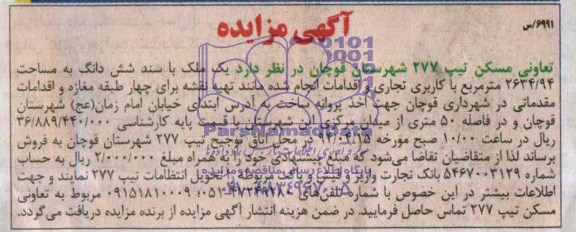 ۶۹۹۱/س
آگهی مزایده
تعاونی مسکن تیپ ۲۷۷ شهرستان قوچان در نظر دارد یک ملک با سند شش دانگ به مساحت
۲۶۳۴/۹۴ مترمربع با کاربری تجاری و اقدامات انجام شده مانند تهیه نقشه برای چهار طبقه مغازه و اقدامات
مقدماتی در شهرداری قوچان جهت اخذ پروانه ساخت به آدرس ابتدای خیابان امام زمان(عج) شهرستان
قوچان و در فاصله ۵۰ متری از میدان مرکزی این شهرستان با قیمت پایه کارشناسی ۳۶/۸۸۹/۴۴۰/۰۰۰
ریال در ساعت ۱۰/۰۰ صبح مورخه در محل اتاق توجیح تیپ ۲۷۷ شهرستان قوچان به فروش
برساند لذا از متقاضیان تقاضا می‌شود که قیمت پیشنهادی خود را به همراه مبلغ ۲/۰۰۰/۰۰۰ ریال به حساب
شماره ۵۴۶۷۰۰۳۱۲۹ بانک تجارت واریز و فیش و پاکت مربوطه را تحویل انتظامات تیپ ۲۷۷ نمایند و جهت
اطلاعات بیشتر در این خصوص با شماره تلفن‌های ۰۵۱ و ۰۹۱۵۱۸۱۰۰۰۹ مربوط به تعاونی
مسکن تیپ ۲۷۷ تماس حاصل فرمایید. در ضمن هزینه انتشار آگهی مزایده از برنده مزایده دریافت می‌گردد.